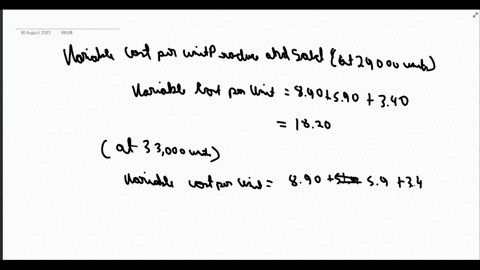 30 August 2023 08:08
Variable cost per unit Produce and Sold (at 29000 units)
Variable cost per unit = 8.90 + 5.90 + 3.40
= 18.20
(at 33,000 units)
Variable cost per unit = 8.90 + 5.9 + 3.4